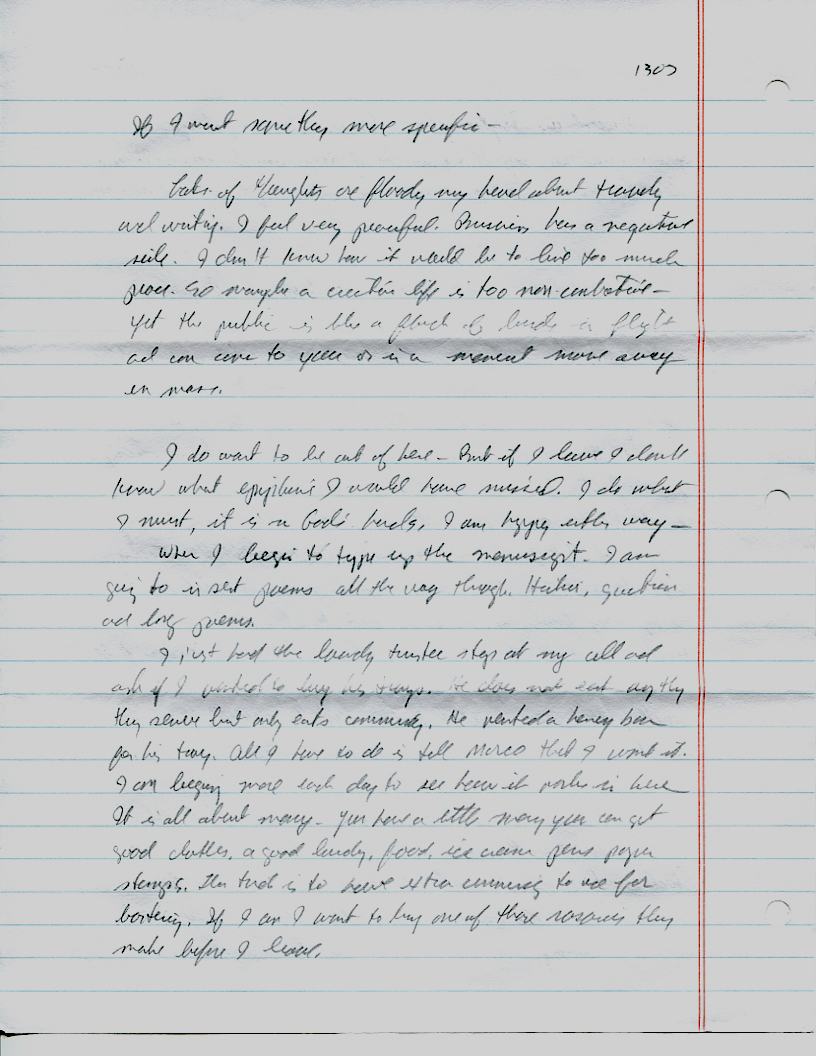 1307
If I want something more specific –
Lots of thoughts are floody my head about travely
and writing. I feel very powerful. Business has a negative
side. I don't know how it would be to live too much
peace. So maybe a creative life is too non-combative –
Yet the public is like a flock of birds in flight
and can come to you or in a moment move away
en mass.
I do want to be out of here – But if I leave I don't
know what epiphani I would have missed. I do what
I must, it is in God's hands, I am happy either way –
When I begin to type up the manuscript. I am
going to insert poems all the way though. Haiku, question
and long poems.
I just had the laundy trustee stop at my cell and
ask if I wanted to buy his trays. He does not eat any thy
they serve but only eats commissary. He wanted a honey bun
for his tray. All I have to do is tell Marco that I want it.
I am beging more each day to see how it works in here
It is all about money – you have a little money you can get
good clothes, a good laundy, food, ice cream pens paper
stamps. The trick is to have extra commissary to use for
bartering. If I can I want to buy one of those rosaries they
make before I leave.